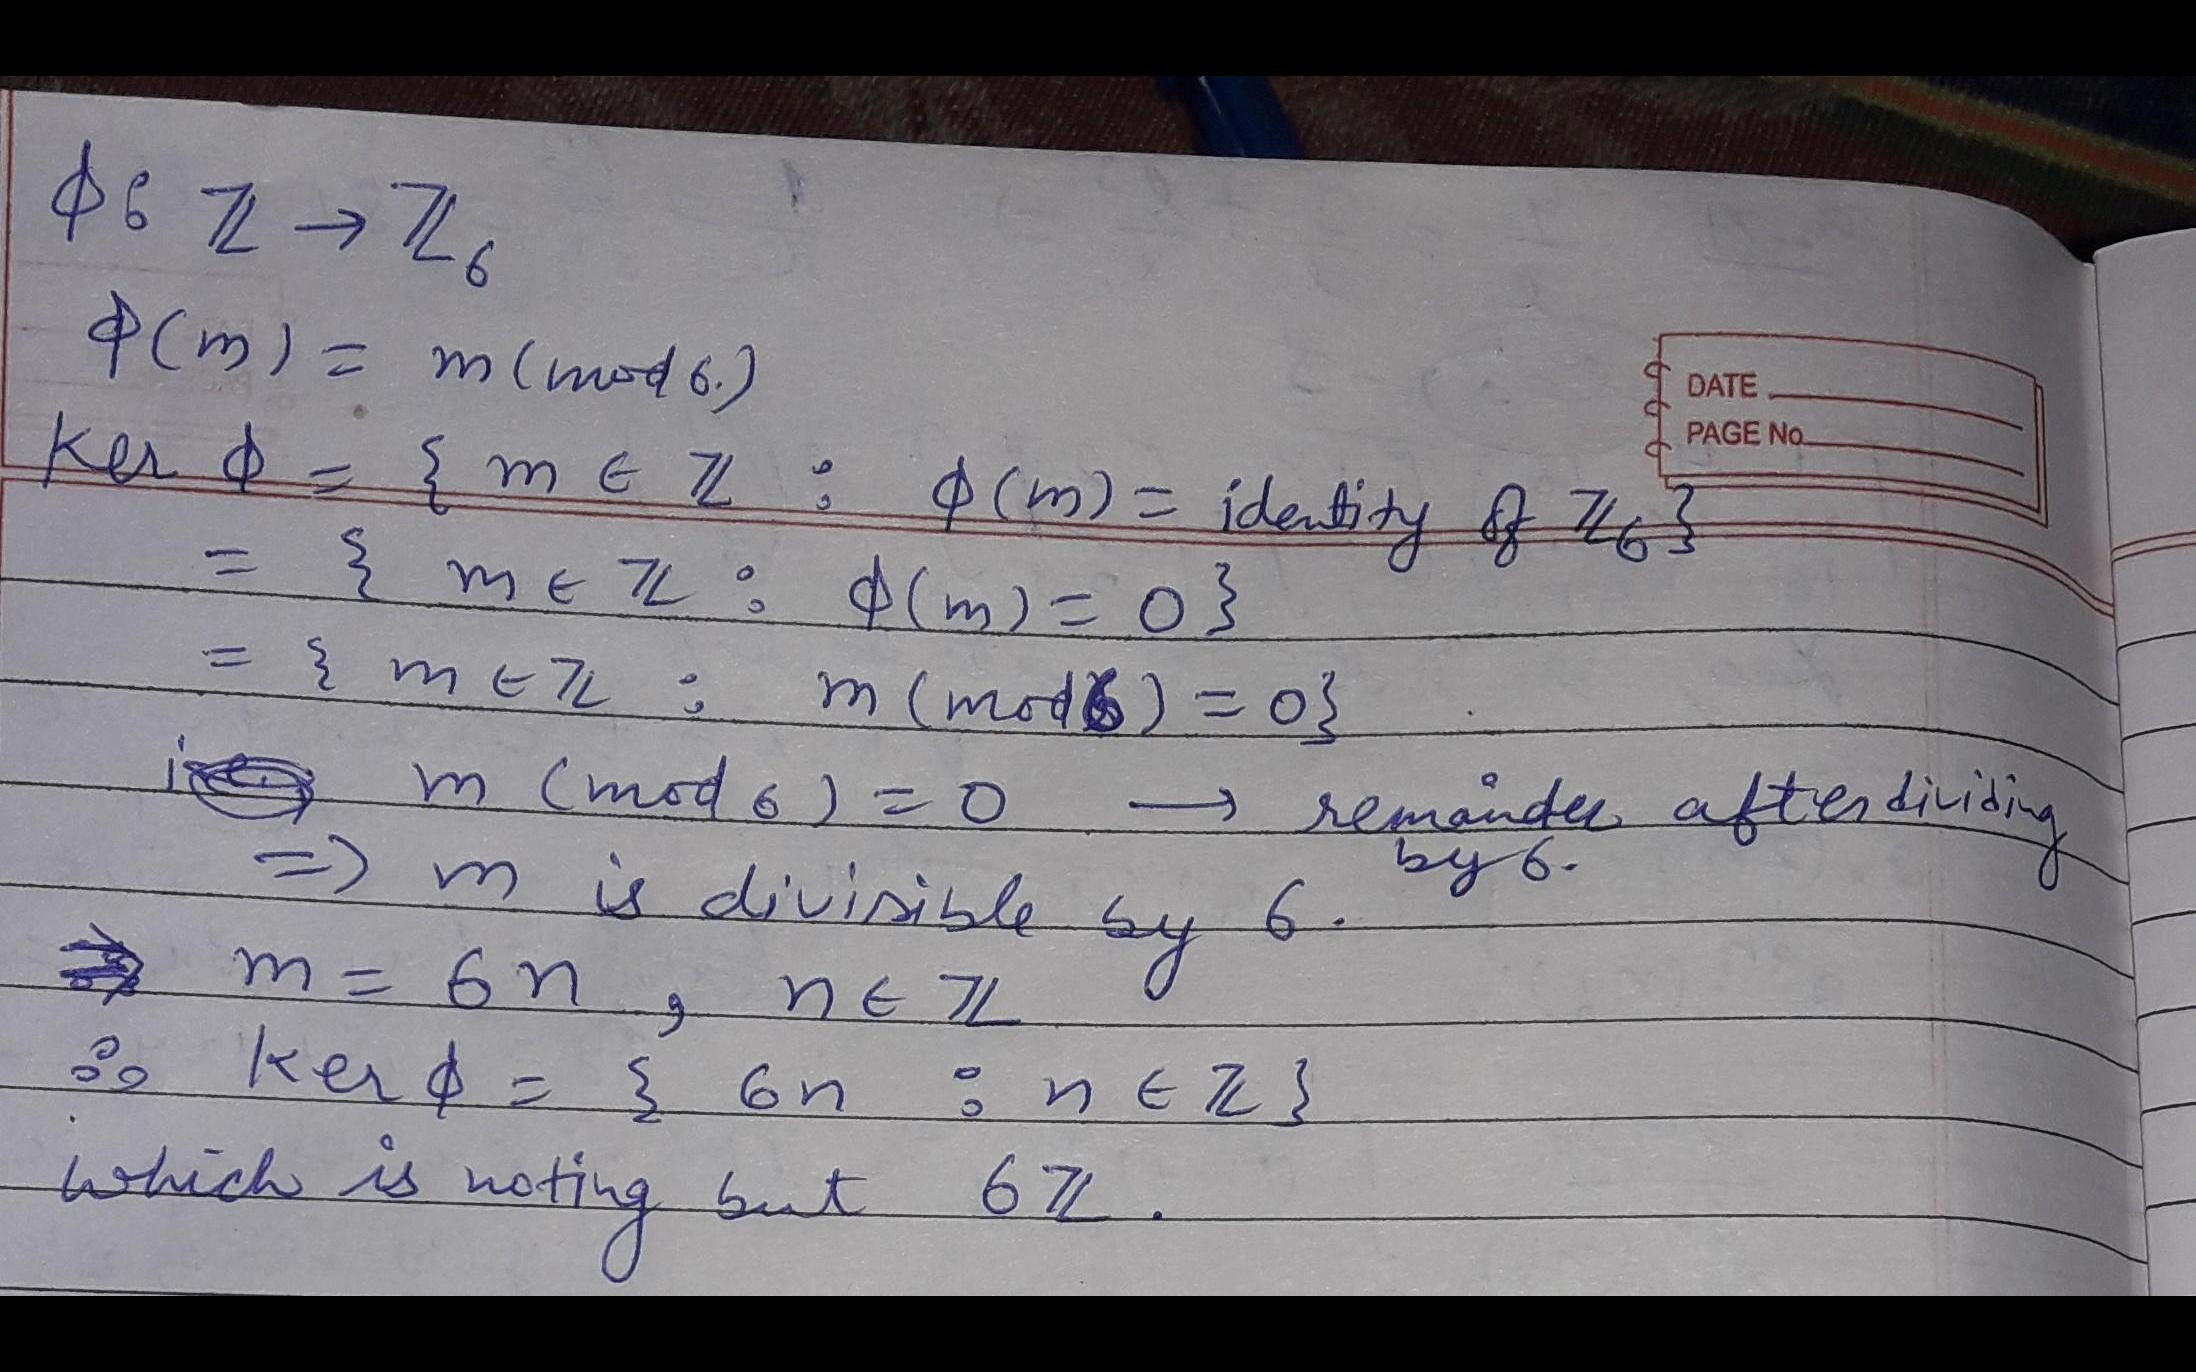 ϕ: ℤ → ℤ₆
ϕ(m) = m (mod 6.)
DATE
PAGE No.
Ker ϕ = { m ∈ ℤ : ϕ(m) = identity of ℤ₆}
= { m ∈ ℤ : ϕ(m) = 0}
= { m ∈ ℤ : m (mod 6) = 0}
m (mod 6) = 0 → remainder after dividing
by 6.
=> m is divisible by 6.
m = 6n, n ∈ ℤ
∴ Ker ϕ = { 6n : n ∈ ℤ}
which is noting but 6ℤ.